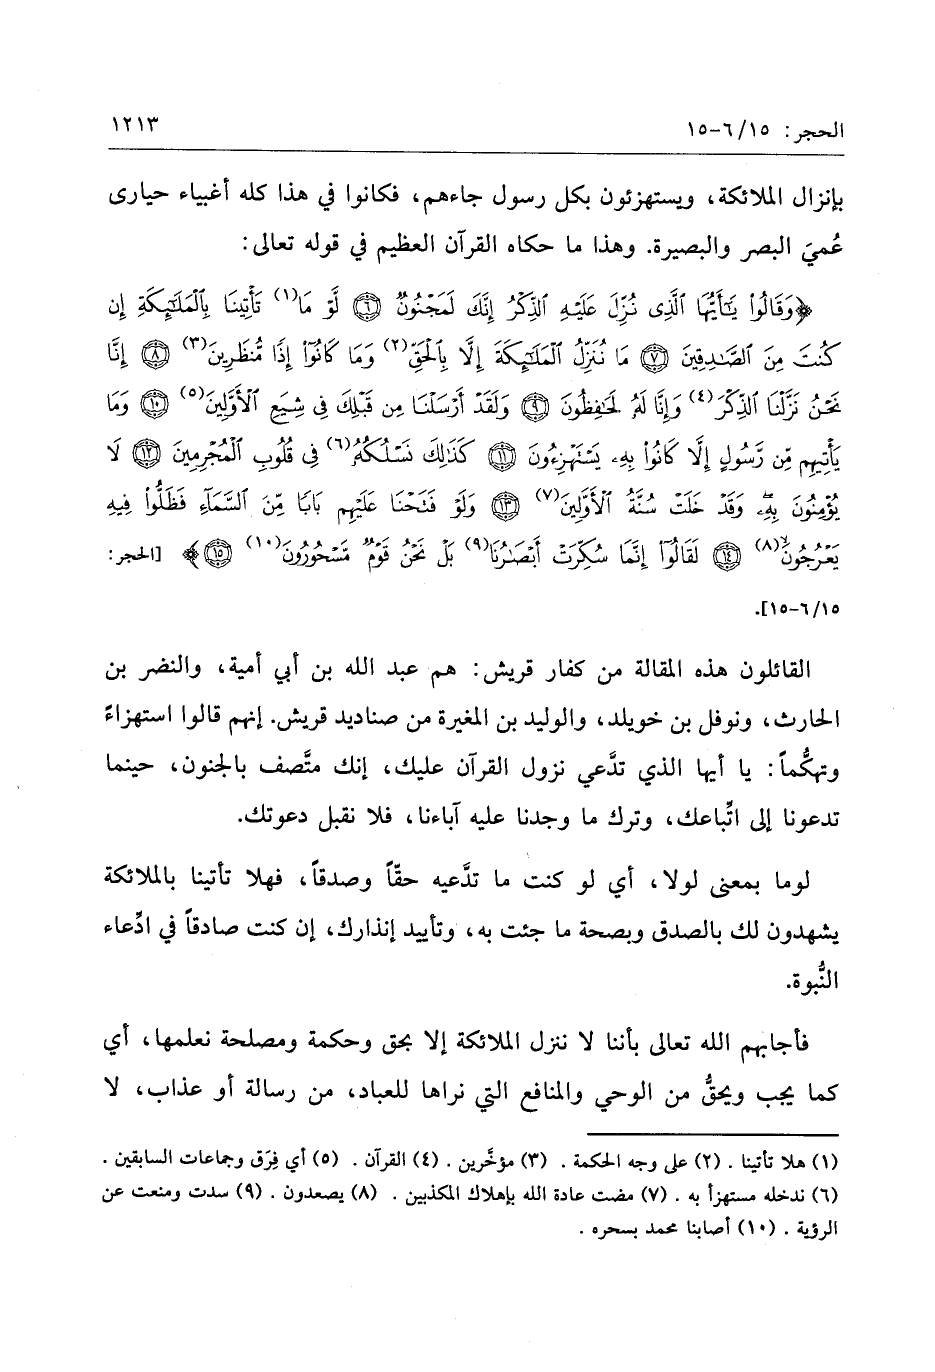 الحجر: ١٥/ ٦-١٥ ١٢١٣
بإنزال الملائكة، ويستهزئون بكل رسول جاءهم، فكانوا في هذا كله أغبياء حيارى
عُميَ البصر والبصيرة. وهذا ما حكاه القرآن العظيم في قوله تعالى:
﴿وَقَالُوا۟ يَـٰٓأَيُّهَا ٱلَّذِى نُزِّلَ عَلَيْهِ ٱلذِّكْرُ إِنَّكَ لَمَجْنُونٌ ۝٦ لَّوْ مَا(١) تَأْتِينَا بِٱلْمَلَـٰٓئِكَةِ إِن
كُنتَ مِنَ ٱلصَّـٰدِقِينَ ۝٧ مَا نُنَزِّلُ ٱلْمَلَـٰٓئِكَةَ إِلَّا بِٱلْحَقِّ(٢) وَمَا كَانُوٓا۟ إِذًا مُّنظَرِينَ(٣) ۝٨ إِنَّا
نَحْنُ نَزَّلْنَا ٱلذِّكْرَ(٤) وَإِنَّا لَهُۥ لَحَـٰفِظُونَ ۝٩ وَلَقَدْ أَرْسَلْنَا مِن قَبْلِكَ فِى شِيَعِ ٱلْأَوَّلِينَ(٥) ۝١٠ وَمَا
يَأْتِيهِم مِّن رَّسُولٍ إِلَّا كَانُوا۟ بِهِۦ يَسْتَهْزِءُونَ ۝١١ كَذَٰلِكَ نَسْلُكُهُۥ(٦) فِى قُلُوبِ ٱلْمُجْرِمِينَ ۝١٢ لَا
يُؤْمِنُونَ بِهِۦ ۖ وَقَدْ خَلَتْ سُنَّةُ ٱلْأَوَّلِينَ(٧) ۝١٣ وَلَوْ فَتَحْنَا عَلَيْهِم بَابًا مِّنَ ٱلسَّمَآءِ فَظَلُّوا۟ فِيهِ
يَعْرُجُونَ(٨) ۝١٤ لَقَالُوٓا۟ إِنَّمَا سُكِّرَتْ أَبْصَـٰرُنَا(٩) بَلْ نَحْنُ قَوْمٌ مَّسْحُورُونَ(١٠) ۝١٥﴾ [الحجر:
١٥/ ٦-١٥].
القائلون هذه المقالة من كفار قريش: هم عبد الله بن أبي أمية، والنضر بن
الحارث، ونوفل بن خويلد، والوليد بن المغيرة من صناديد قريش. إنهم قالوا استهزاءً
وتهكُّماً: يا أيها الذي تدَّعي نزول القرآن عليك، إنك متَّصف بالجنون، حينما
تدعونا إلى اتِّباعك، وترك ما وجدنا عليه آباءنا، فلا نقبل دعوتك.
لوما بمعنى لولا، أي لو كنت ما تدَّعيه حقّاً وصدقاً، فهلا تأتينا بالملائكة
يشهدون لك بالصدق وبصحة ما جئت به، وتأييد إنذارك، إن كنت صادقاً في ادِّعاء
النُّبوة.
فأجابهم الله تعالى بأننا لا ننزل الملائكة إلا بحق وحكمة ومصلحة نعلمها، أي
كما يجب ويحقُّ من الوحي والمنافع التي نراها للعباد، من رسالة أو عذاب، لا
(١) هلا تأتينا. (٢) على وجه الحكمة. (٣) مؤخَّرين. (٤) القرآن. (٥) أي فِرَق وجماعات السابقين.
(٦) ندخله مستهزأ به. (٧) مضت عادة الله بإهلاك المكذبين. (٨) يصعدون. (٩) سدت ومنعت عن
الرؤية. (١٠) أصابنا محمد بسحره.